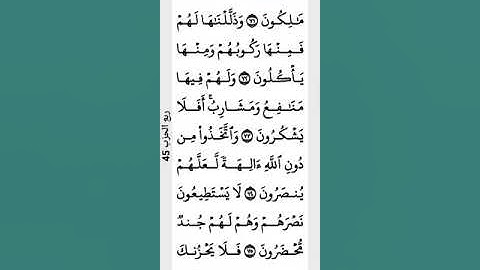 مَٰلِكُونَ ٧١ وَذَلَّلْنَٰهَا لَهُمْ
فَمِنْهَا رَكُوبُهُمْ وَمِنْهَا
يَأْكُلُونَ ٧٢ وَلَهُمْ فِيهَا
مَنَٰفِعُ وَمَشَارِبُ ۖ أَفَلَا
يَشْكُرُونَ ٧٣ وَٱتَّخَذُوا۟ مِن
دُونِ ٱللَّهِ ءَالِهَةً لَّعَلَّهُمْ
يُنصَرُونَ ٧٤ لَا يَسْتَطِيعُونَ
نَصْرَهُمْ وَهُمْ لَهُمْ جُندٌ
مُّحْضَرُونَ ٧٥ فَلَا يَحْزُنكَ
ربع الحزب 45